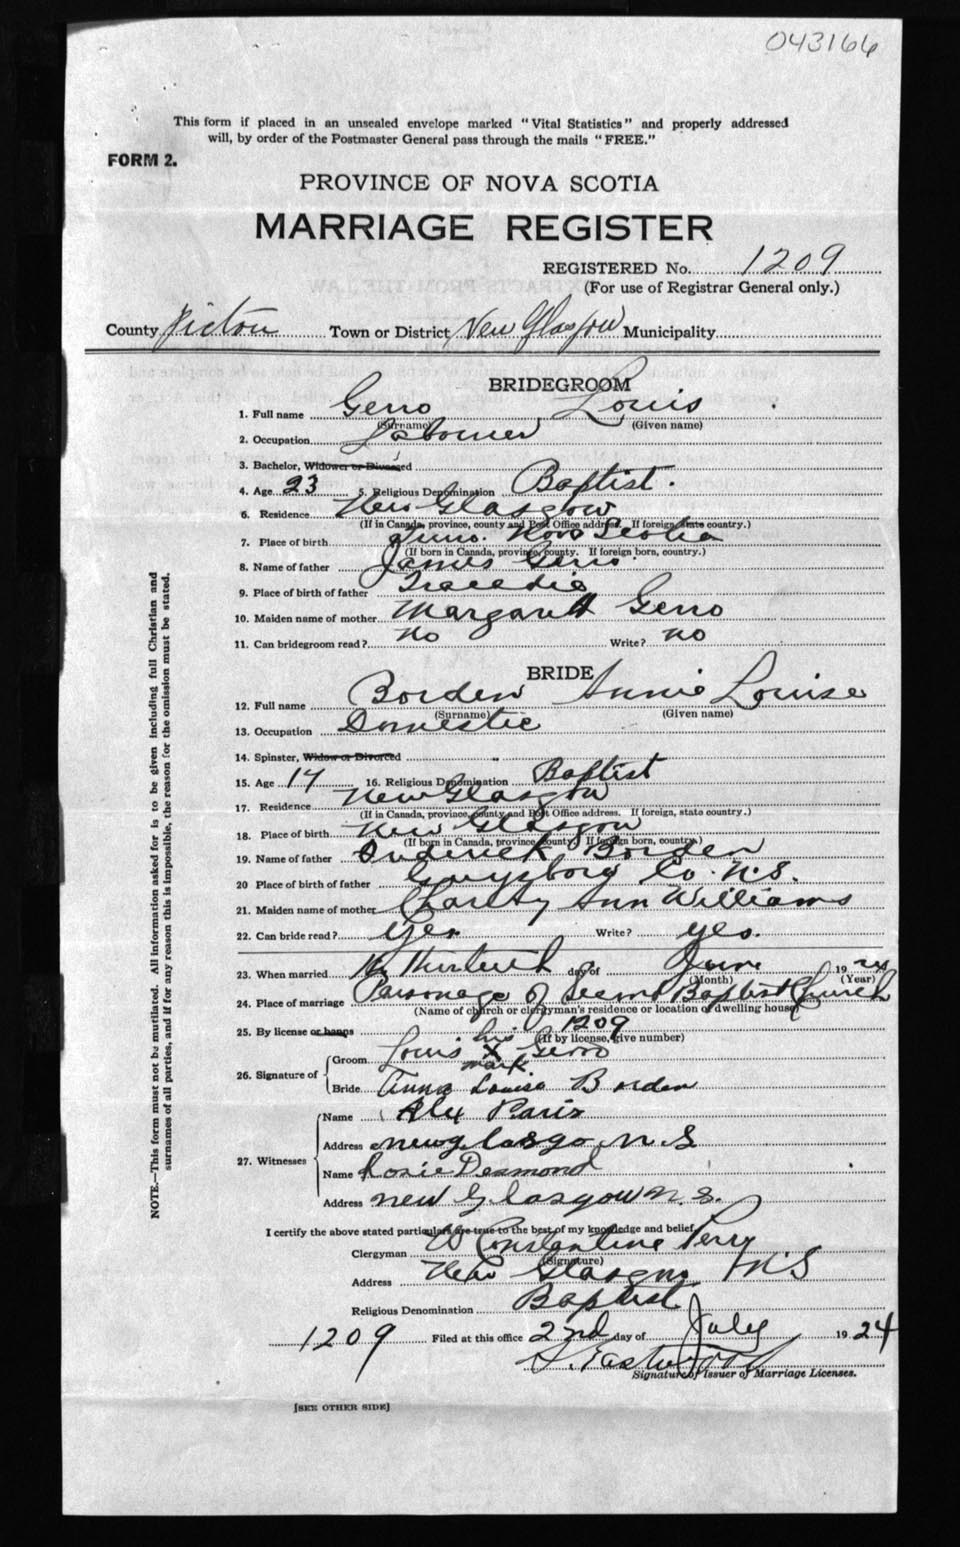 043166
This form if placed in an unsealed envelope marked "Vital Statistics" and properly addressed
will, by order of the Postmaster General pass through the mails "FREE."
FORM 2.
PROVINCE OF NOVA SCOTIA
MARRIAGE REGISTER
REGISTERED No. 1209
(For use of Registrar General only.)
County Pictou Town or District New Glasgow Municipality
BRIDEGROOM
1. Full name Gero Louis
(Surname) (Given name)
2. Occupation Labourer
3. Bachelor, Widower or Divorced
4. Age 23 5. Religious Denomination Baptist.
6. Residence New Glasgow
(If in Canada, province, county and Post Office address. If foreign state country.)
7. Place of birth Nova Scotia
(If born in Canada, province, county. If foreign born, country.)
8. Name of father James Gero.
9. Place of birth of father Tracadie
10. Maiden name of mother Margarett Gero
11. Can bridegroom read? No Write? no
BRIDE
12. Full name Borden Annie Louise
(Surname) (Given name)
13. Occupation Domestic
14. Spinster, Widow or Divorced
15. Age 16. Religious Denomination Baptist
17. Residence New Glasgow
(If in Canada, province, county and Post Office address. If foreign, state country.)
18. Place of birth New Glasgow
(If born in Canada, province county. If foreign born, country)
19. Name of father Frederick Borden
20 Place of birth of father Guysboro Co. N.S.
21. Maiden name of mother Charity Ann Williams
22. Can bride read? Yes Write? yes.
23. When married Thirteenth day of June 1924
(Month) (Year)
24. Place of marriage Parsonage of Second Baptist Church
(Name of church or clergyman's residence or location of dwelling house)
25. By license or banns 1209
(If by license, give number)
26. Signature of Groom Louis his X mark Gero
Bride Anna Louisa Borden
27. Witnesses Name Alex Paris
Address new glasgo N S
Name Rosie Desmond
Address new Glasgow N. S.
I certify the above stated particulars are true to the best of my knowledge and belief.
Clergyman W Constantine Perry
(Signature)
Address New Glasgow N.S
Religious Denomination Baptist
1209 Filed at this office 2nd day of July 1924
Eastwood
Signature of Issuer of Marriage Licenses.
[SEE OTHER SIDE]
NOTE.—This form must not be mutilated. All information asked for is to be given including full Christian and
surnames of all parties, and if for any reason this is impossible, the reason for the omission must be stated.